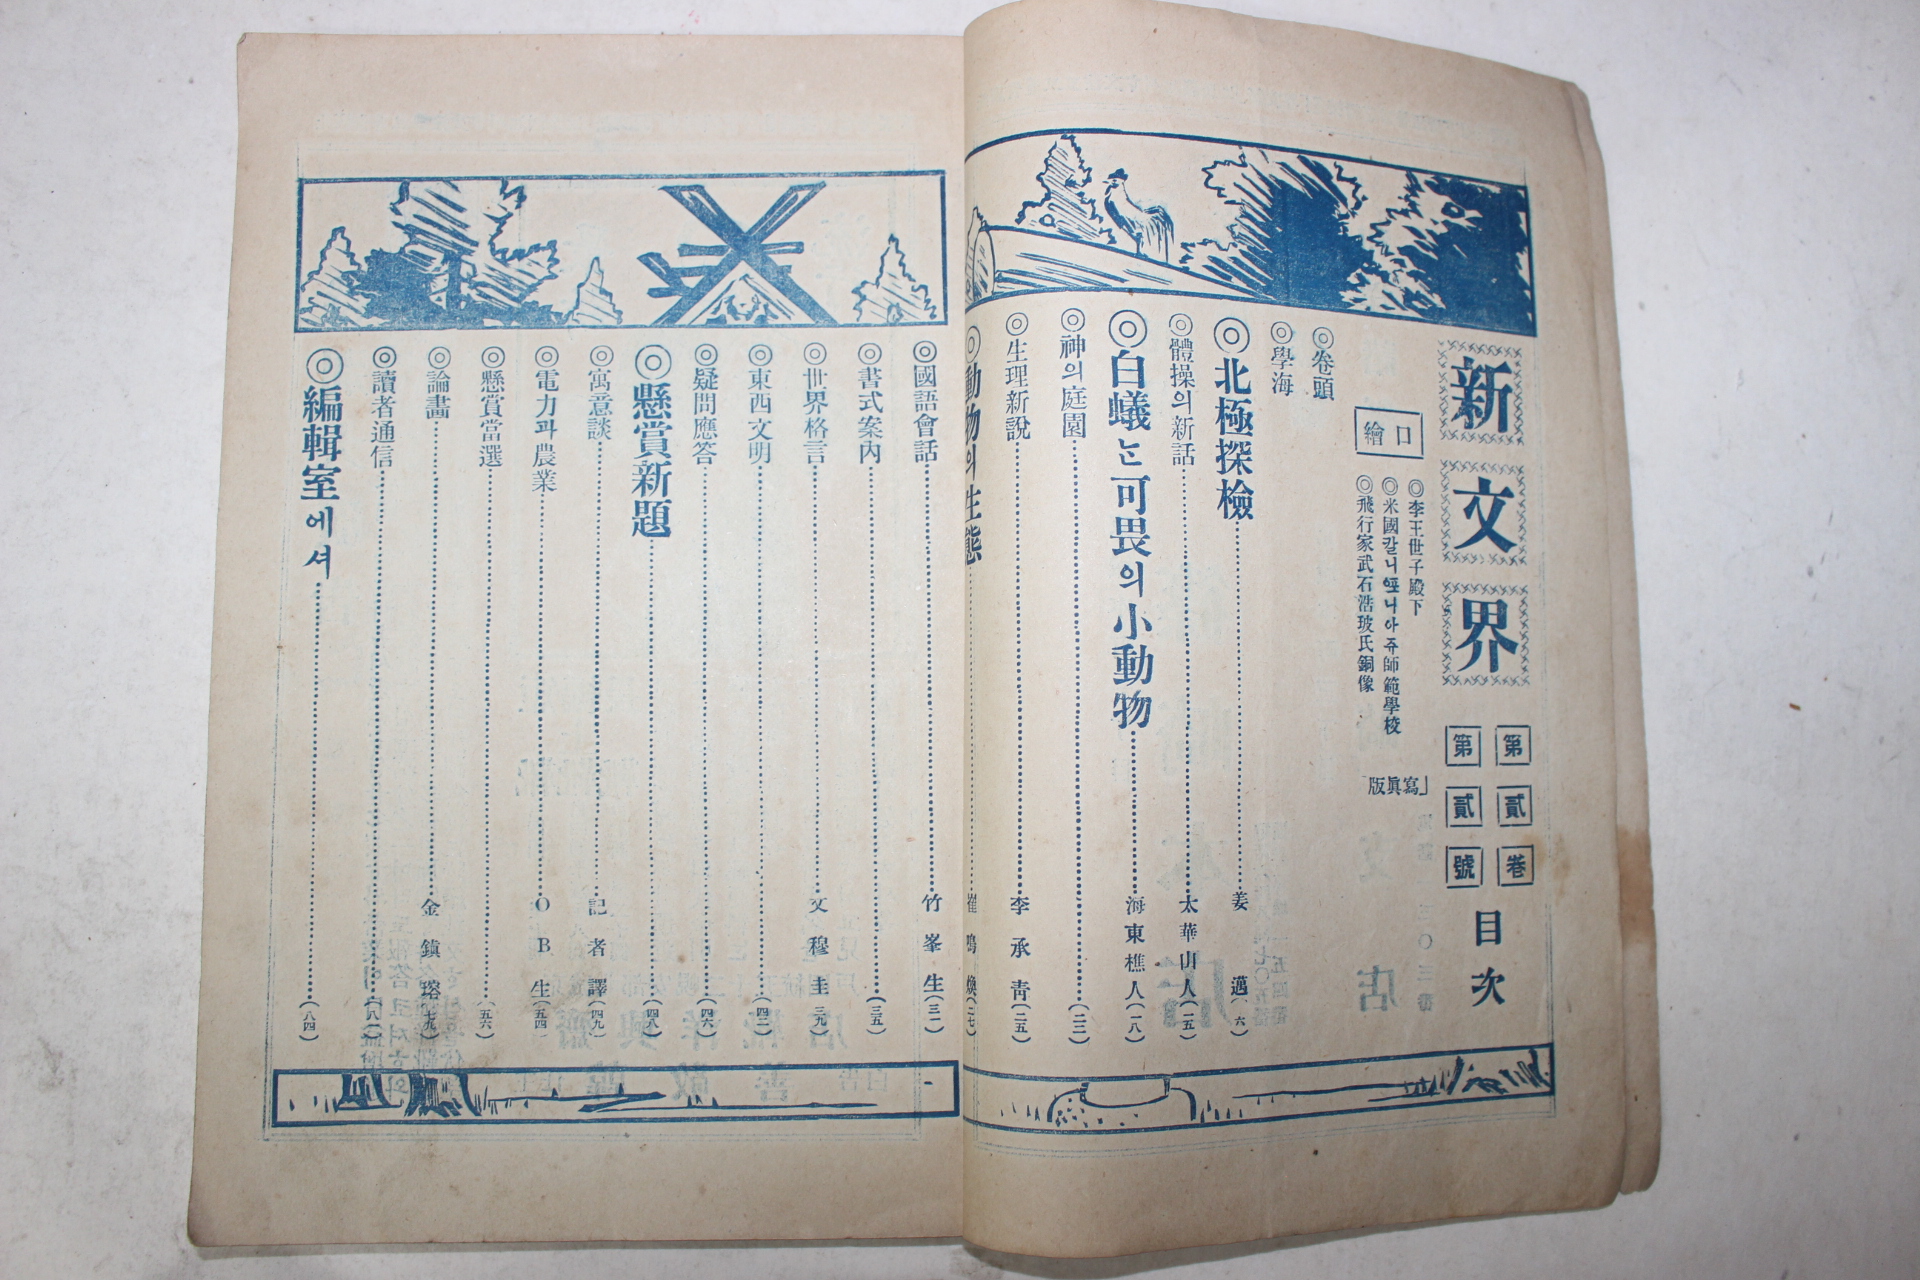 新文界
第貳卷
第貳號
目次
口繪
◎李王世子殿下
◎米國칼니포니아쥬師範學校
◎飛行家武石浩玻氏銅像
寫眞版
◎卷頭
◎學海
◎北極探檢 姜邁(六)
◎體操의新話 太華山人(一五)
◎白蟻는可畏의小動物 海東樵人(一八)
◎神의庭園 (二二)
◎生理新說 李承靑(二五)
◎動物의生態 崔鳴煥(二七)
◎國語會話 竹峯生(三一)
◎書式案內 (三五)
◎世界格言 文穆圭(三九)
◎東西文明 (四二)
◎疑問應答 (四六)
◎懸賞新題 (四八)
◎寓意談 記者譯(四九)
◎電力과農業 OB生(五四)
◎懸賞當選 (五六)
◎論畵 金鎭瑢(七九)
◎讀者通信
◎編輯室에셔 (八四)